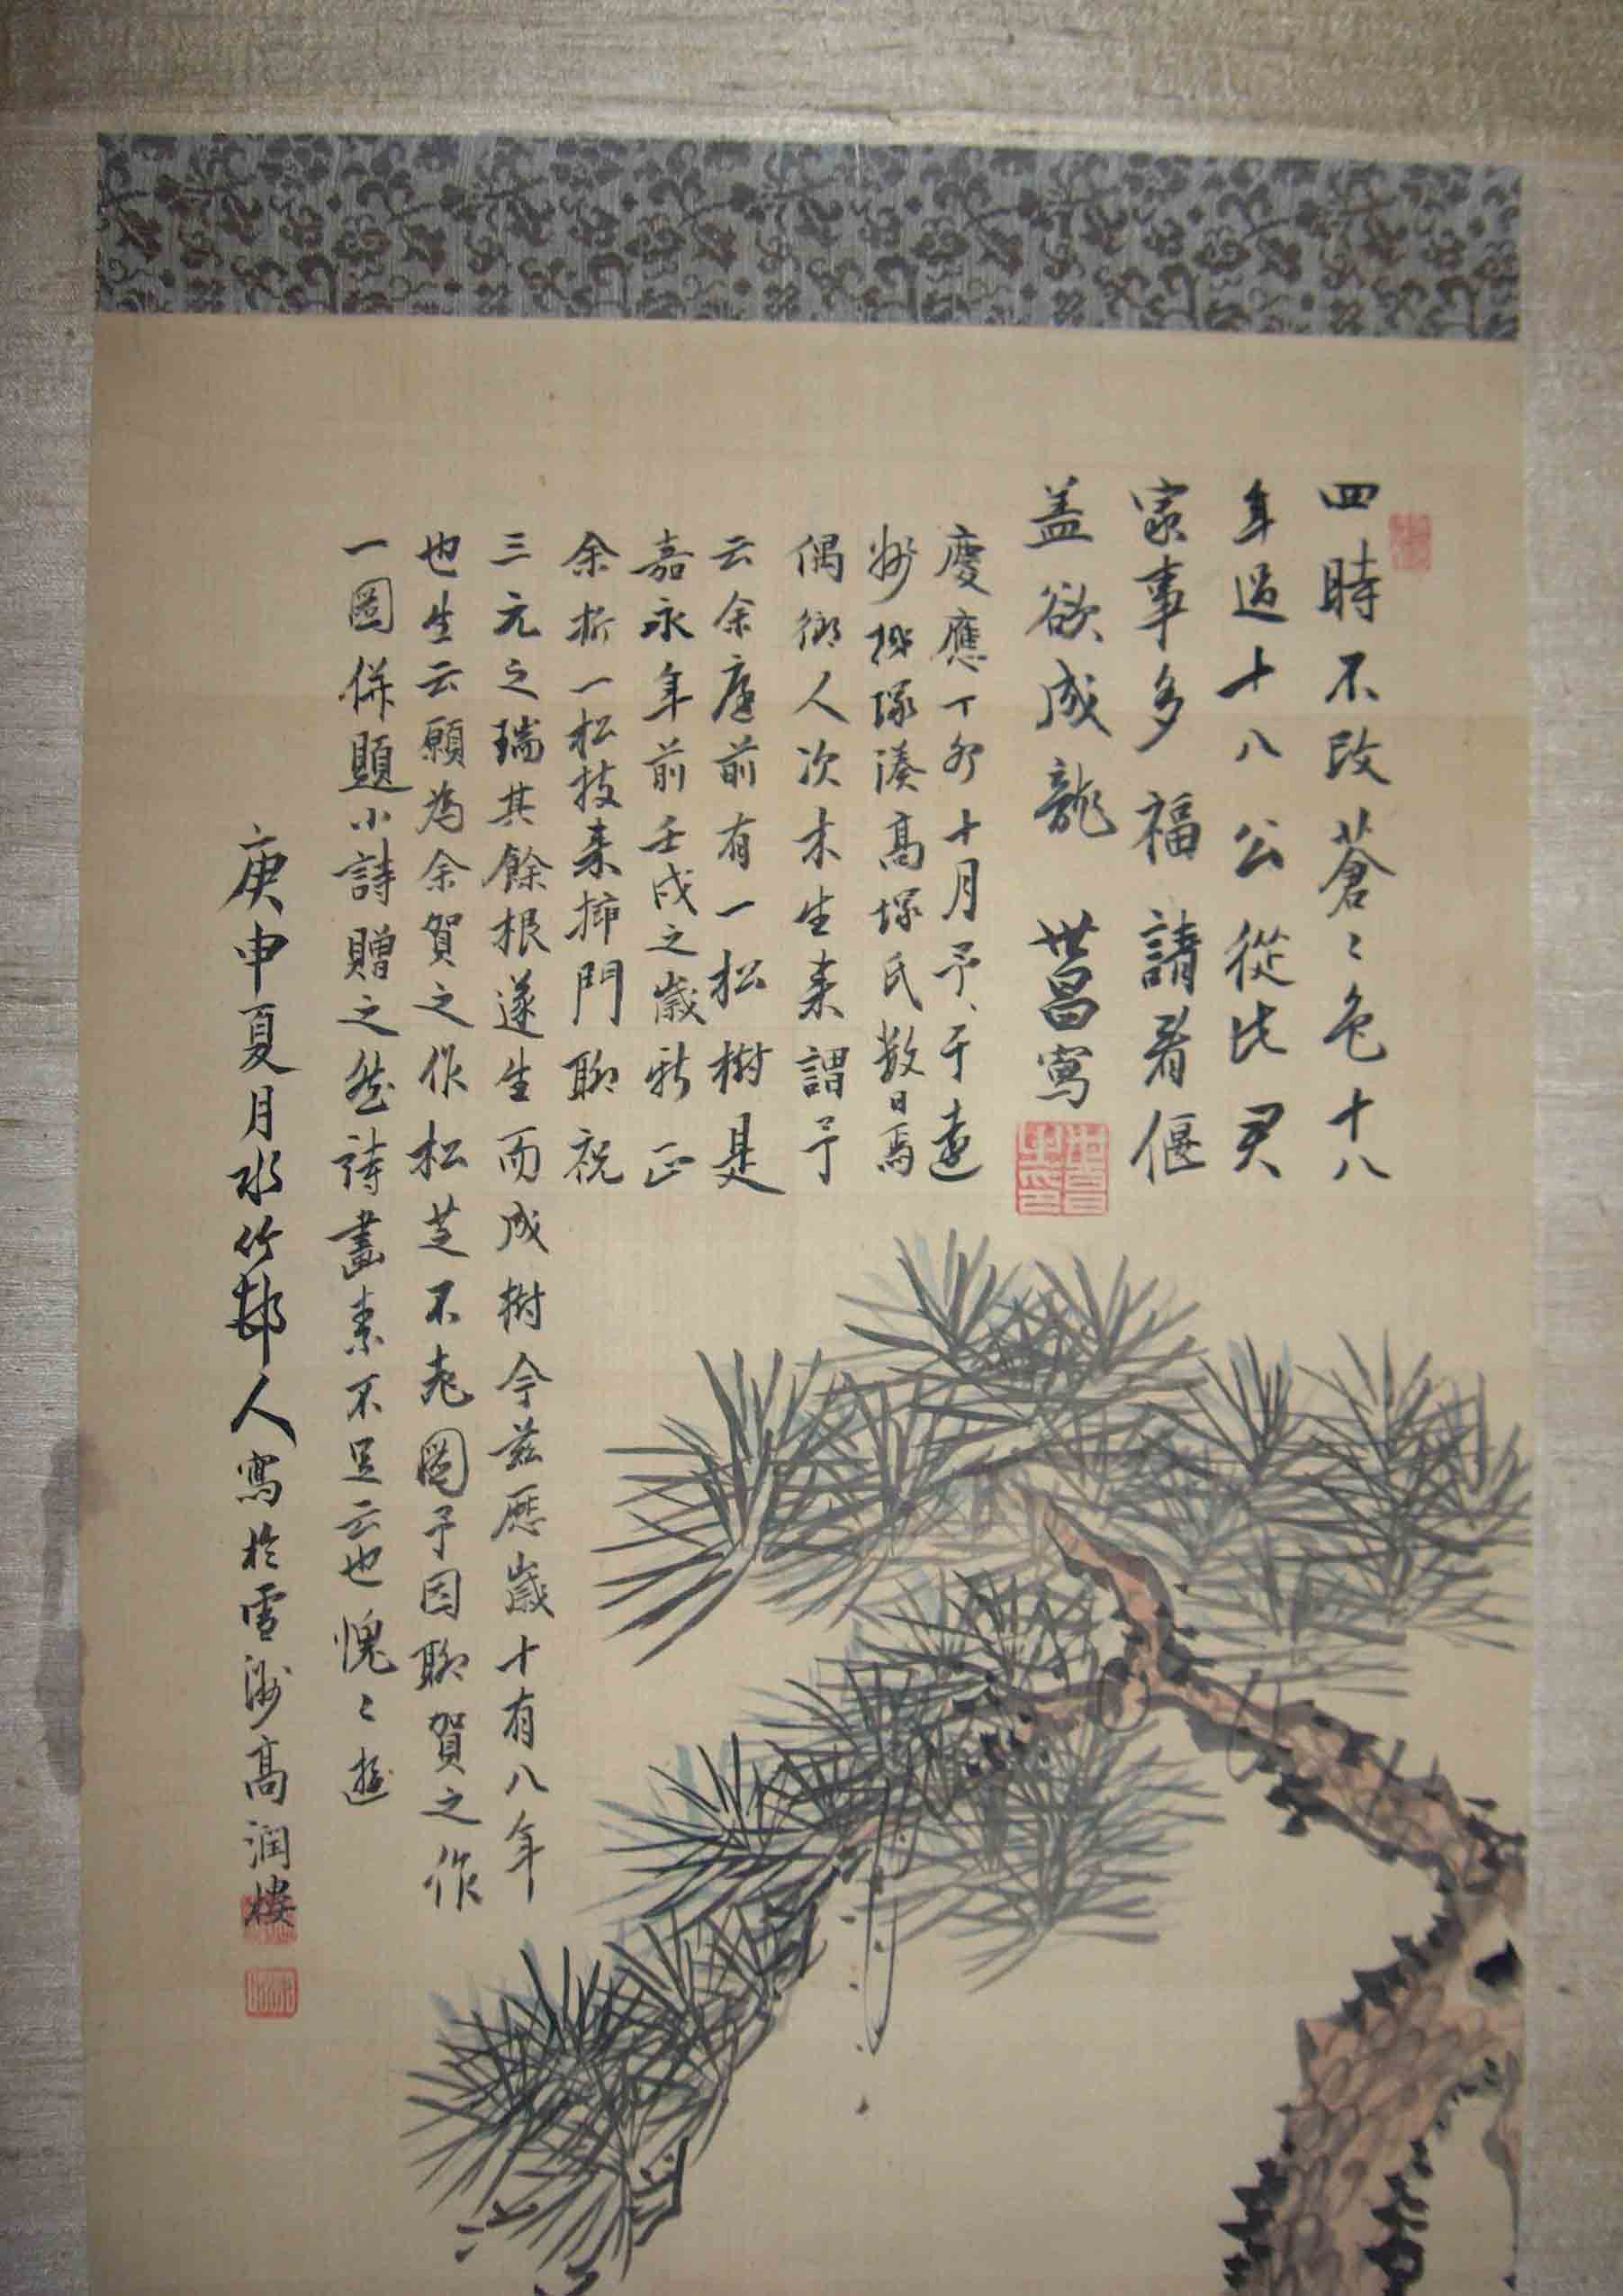 四時不改蒼〻色十八
年過十八公從此君
家事多福請看偃
蓋欲成龍 世昌寫
慶應丁卯十月予、于遠
州掛塚湊高塚氏数日焉
偶鄉人次木生来謂予
云余庭前有一松樹是
嘉永年前壬戌之歲新正
余折一松枝来插門聊祝
三元之瑞其餘根遂生而成樹今茲歷歲十有八年
也生云願為余賀之作松芝不老圖予因聊賀之作
一圖併題小詩贈之然詩畫素不足云也愧〻
庚申夏月水竹邨人寫於雪湖高润樓